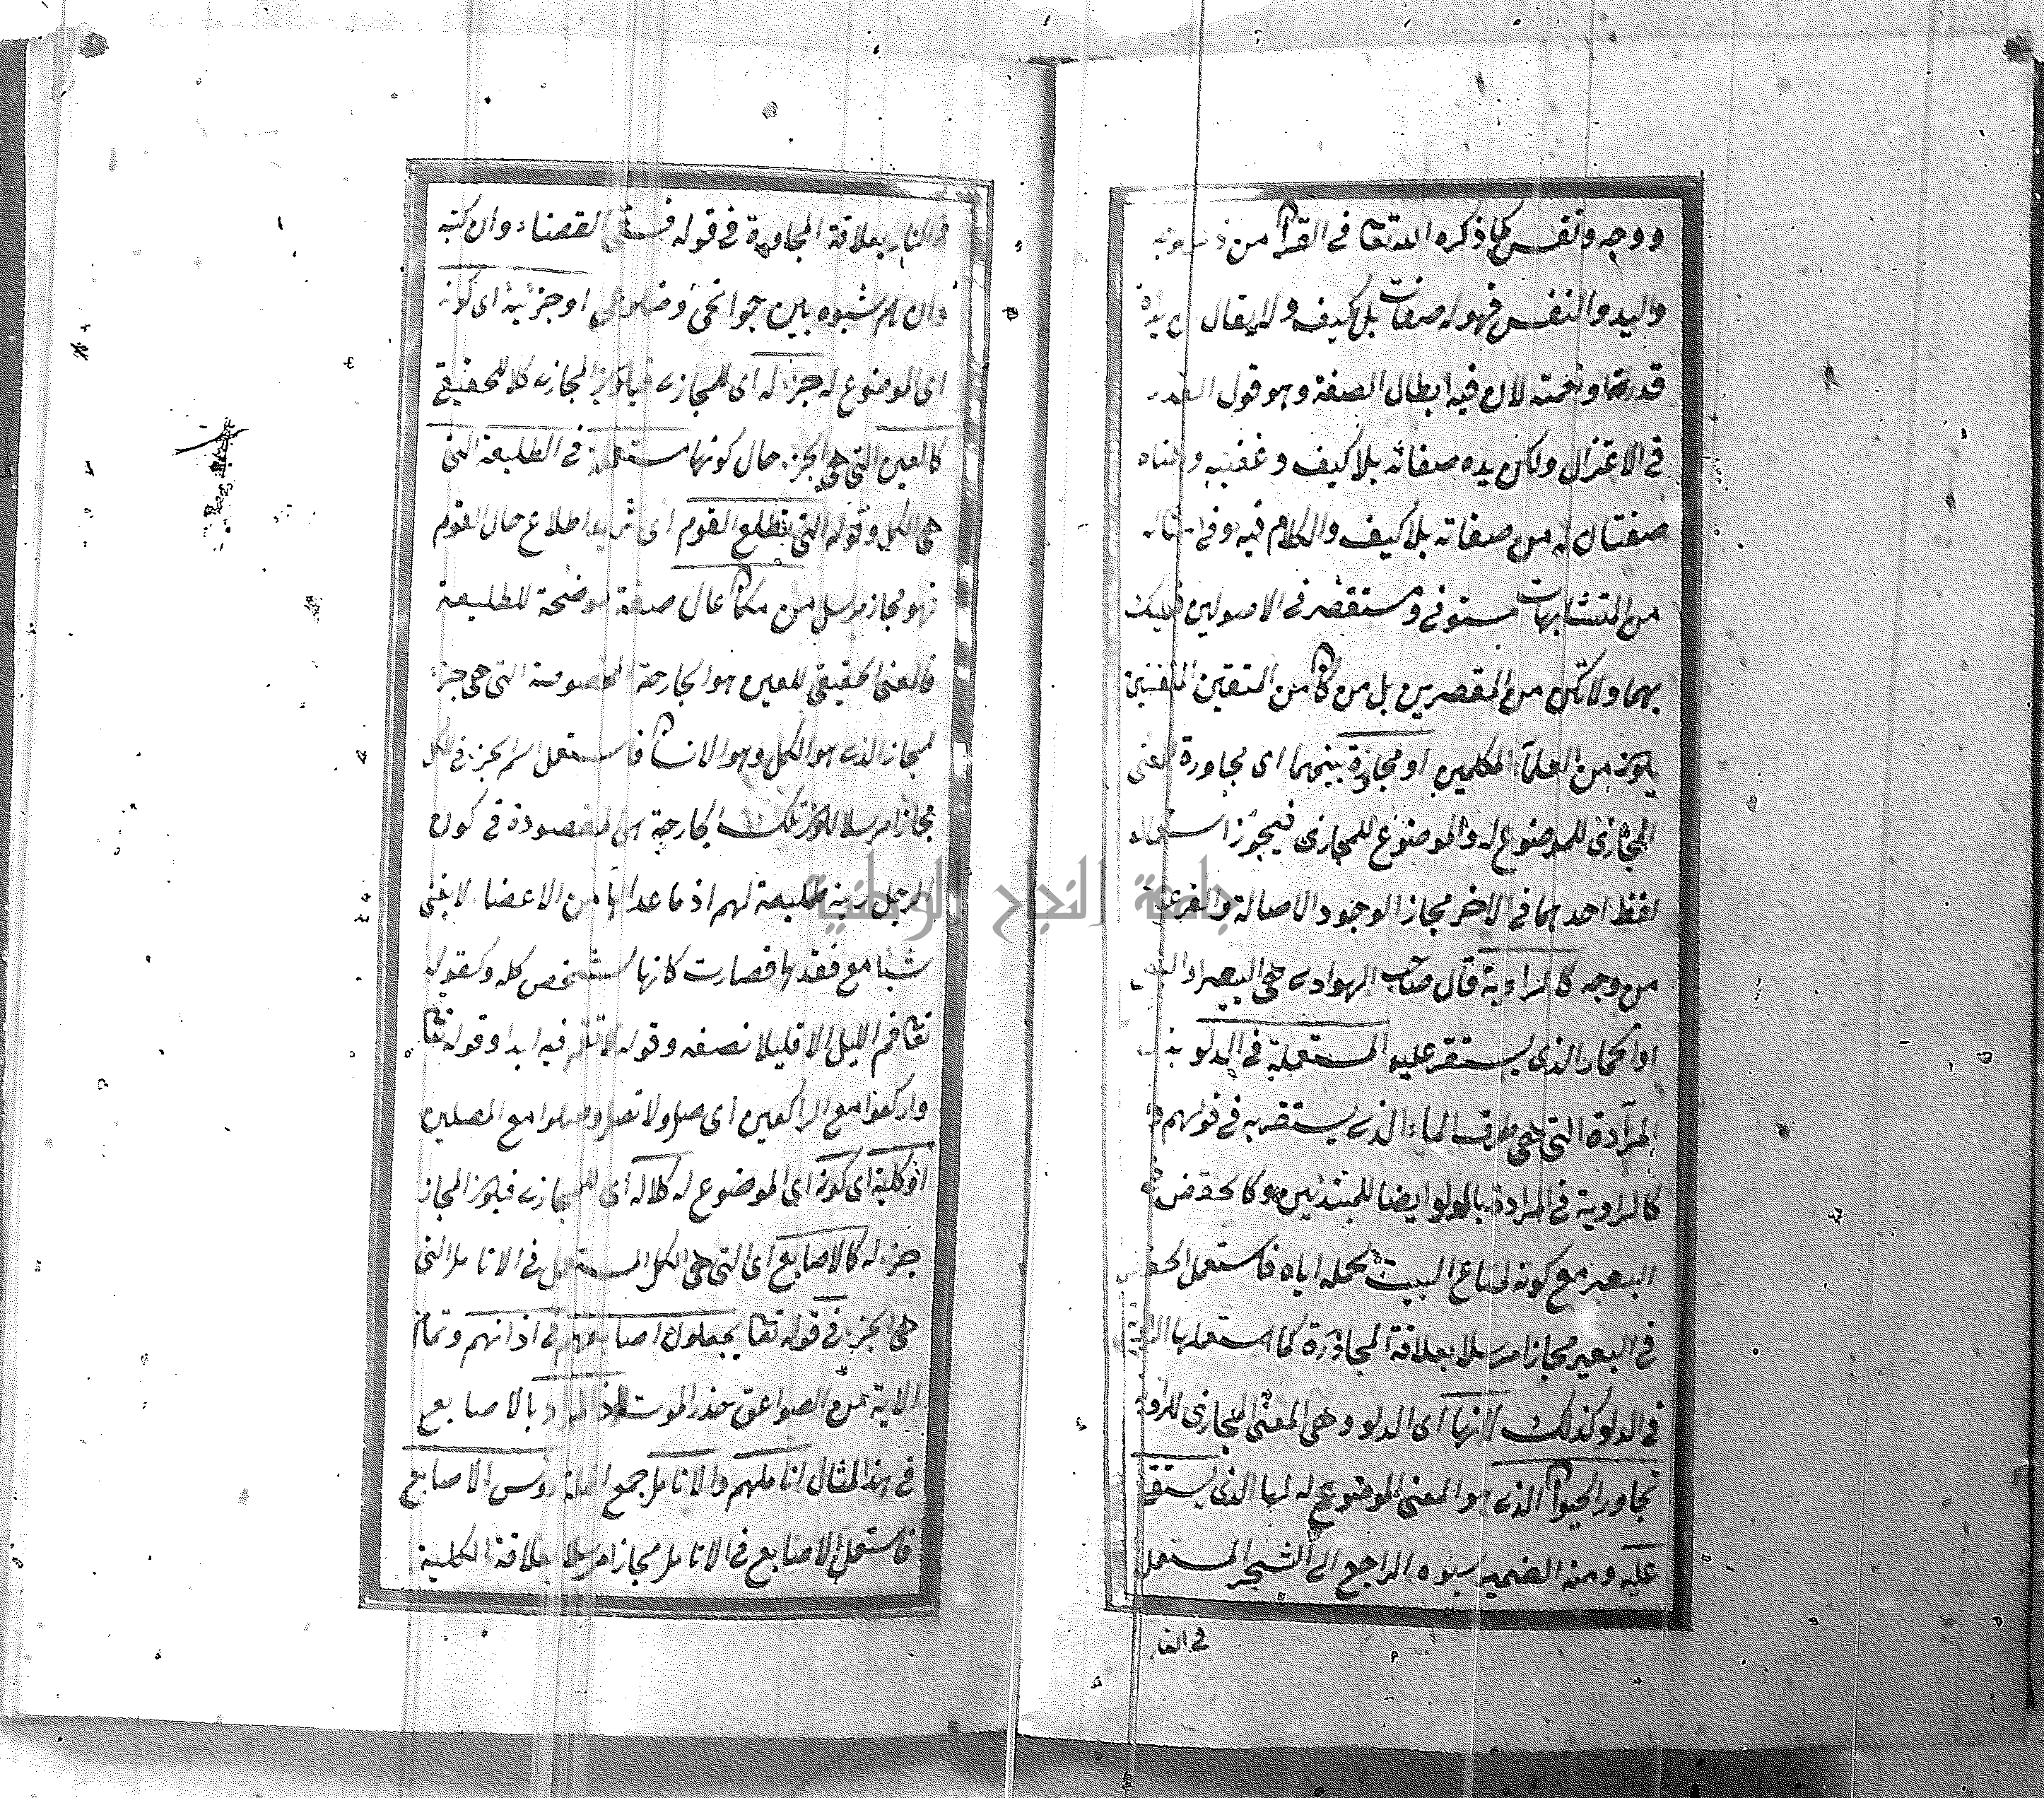 ووجه ونفس كما ذكره الله تعا في القرآن من ذكر الوجه
واليد والنفس فهو له صفات بلا كيف ولا يقال ان يده
قدرته او نعمته لان فيه ابطال الصفة وهو قول القدر
في الاعتزال ولكن يده صفاته بلا كيف وغضبه ورضاه
صفتان له من صفاته بلا كيف والكلام فيه وفي امثاله
من المتشابهات مستوفى ومستقصر في الاصولين فعليك
بهما ولا تكن من المقصرين بل من كان من المتقين المتقنين
يكون من العلماء الكملين او مجاورة بينهما اى مجاورة المعنى
المجازى للموضوع له والموضوع للمجازى فيجوز استعمال
لفظ احدهما في الاخر مجاز الوجود الاصالة والفرعية
من وجه كالراوية قال صاحب الهوادى هى البعير او البغل
او الحمار الذى يستقر عليه المستعملة في الدلو
المزادة التى هى ظرف الماء الذى يستقر به في قولهم
كالراوية في المزادة بالدلو ايضا للمبتدئين وكالحفض في
البعير مع كونه لمتاع البيت لحمله اياه فاستعمل الحفض
في البعير مجازا مرسلا بعلاقة المجاورة كما استعملها
في الدلو كذلك لانها اى الدلو وهى المعنى المجازى للراوية
تجاور الحيوان الذى هو المعنى الموضوع له لها الذى يستقى
عليه ومنه الضمير شبوه الراجع الى الشجر المستعمل
في النار
في النار بعلاقة المجاورة في قوله فسقى القضاء وان كنته
وان هم شبوه بين جوانحى وضلوعى او جزئية اى كونه
اى الموضوع له جزء له اى للمجازى فيكون المجازى كلا للحقيقى
كالعين التى هى الجزء حال كونها مستعملة في الطليعة التى
هى الكل وقوله التى تطلع القوم اى تريد اطلاع حال القوم
فهو مجاز مرسل من مكان عال صفة موضحة للطليعة
فالمعنى الحقيقى للعين هو الجارحة المخصوصة التى هى جزء
لمجاز الذى هو الكل وهو الانسان فاستعمل اسم الجزء في الكل
مجازا مرسلا لكون تلك الجارحة هى المقصودة في كون
الرجل ربيئة طليعة لهم اذ ما عداها من الاعضاء لا يغنى
شيئا مع فقدها فصارت كانها الشخص كله وكقوله
تعا قم الليل الا قليلا نصفه وقوله لا تقم فيه ابدا وقوله تعا
واركعوا مع الراكعين اى صلوا ولا تصل وصلوا مع المصلين
او كلية اى كونه اى الموضوع له كلا له اى للمجازى فيكون المجاز
جزء له كالاصابع اى التى هى الكل المستعمل في الانامل التى
هى الجزء في قوله تعا يجعلون اصابعهم في اذانهم وتمام
الاية من الصواعق حذر الموت اذ المراد بالاصابع
في هذا المثال اناملهم والانامل جمع انملة رؤس الاصابع
فاستعمل الاصابع في الانامل مجازا مرسلا بعلاقة الكلية
جامعة النجاح الوطنية